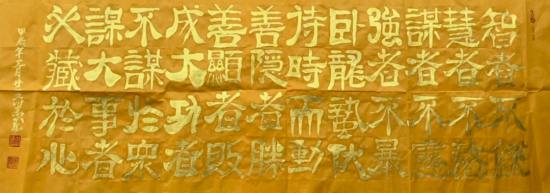 智者不
慧者不
謀者不露
強者不暴
卧龍蟄伏
待時而動
善隱者勝
善顯者敗
成大功者
不謀於衆
謀大事者
必藏於心
甲辰年